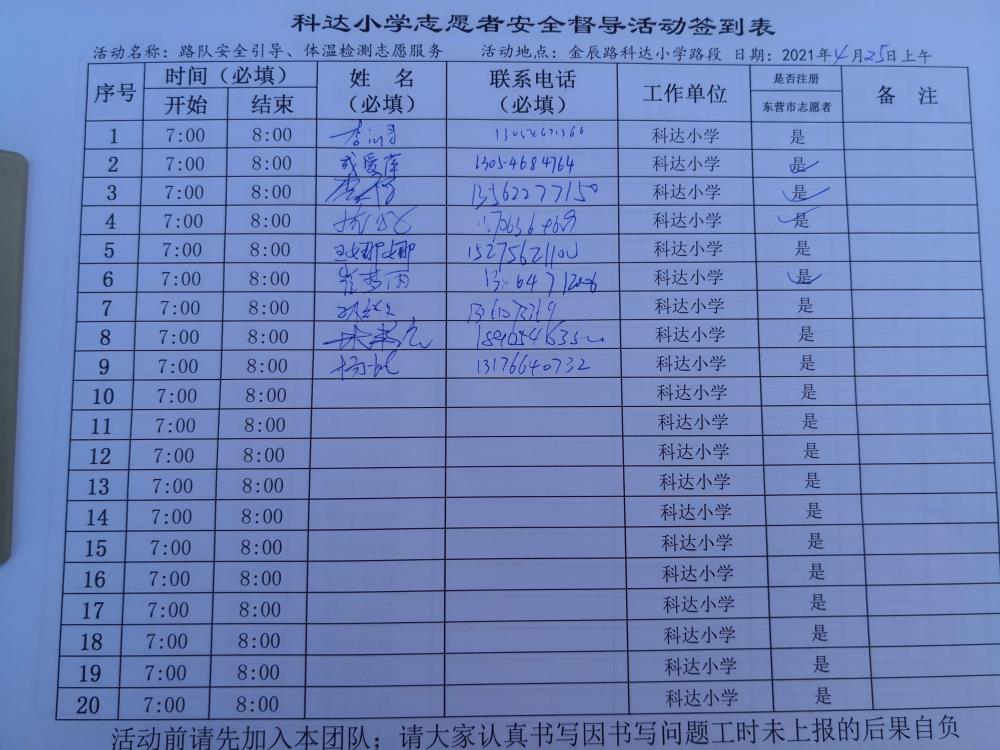 科达小学志愿者安全督导活动签到表
活动名称：路队安全引导、体温检测志愿服务 活动地点：金辰路科达小学路段 日期：2021年4月25日上午
序号 时间（必填） 姓 名（必填） 联系电话（必填） 工作单位 是否注册 备 注
开始 结束 东营市志愿者
1 7:00 8:00 科达小学 是
2 7:00 8:00 13054684764 科达小学 是
3 7:00 8:00 13562277150 科达小学 是
4 7:00 8:00 科达小学 是
5 7:00 8:00 王娜娜 15275621100 科达小学 是
6 7:00 8:00 科达小学 是
7 7:00 8:00 科达小学 是
8 7:00 8:00 科达小学 是
9 7:00 8:00 13176640732 科达小学 是
10 7:00 8:00 科达小学 是
11 7:00 8:00 科达小学 是
12 7:00 8:00 科达小学 是
13 7:00 8:00 科达小学 是
14 7:00 8:00 科达小学 是
15 7:00 8:00 科达小学 是
16 7:00 8:00 科达小学 是
17 7:00 8:00 科达小学 是
18 7:00 8:00 科达小学 是
19 7:00 8:00 科达小学 是
20 7:00 8:00 科达小学 是
活动前请先加入本团队；请大家认真书写因书写问题工时未上报的后果自负